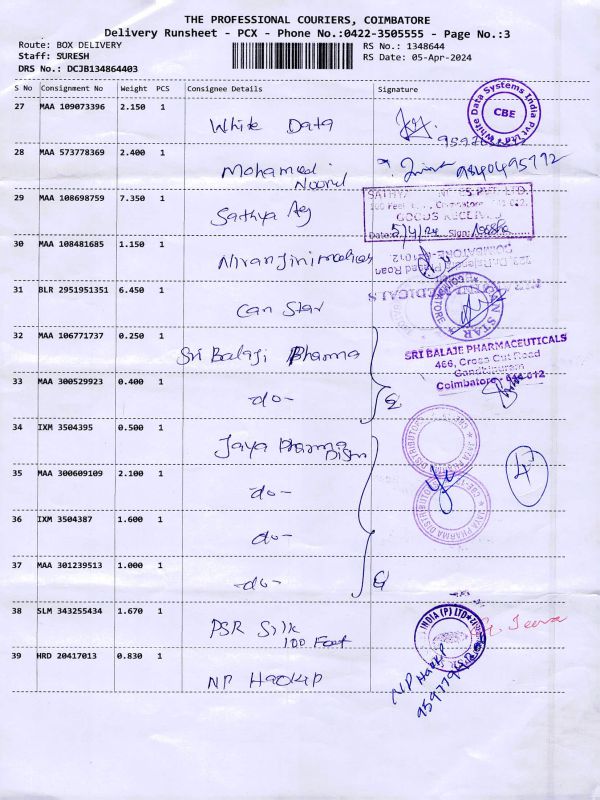 THE PROFESSIONAL COURIERS, COIMBATORE
Delivery Runsheet - PCX - Phone No.:0422-3505555 - Page No.:3
Route: BOX DELIVERY
RS No.: 1348644
Staff: SURESH
RS Date: 05-Apr-2024
DRS No.: DCJB134864403
S No Consignment No Weight PCS Consignee Details Signature
27 MAA 109073396 2.150 1 White Data
White Data Systems India Pvt Ltd CBE
28 MAA 573778369 2.400 1 Mohamed Noorul
29 MAA 108698759 7.350 1 Sathya Ag
SATHYA
GOODS RECEIVED
Date: 5/4/24 Sign:
30 MAA 108481685 1.150 1 Niranjini medicals
MEDICALS
COIMBATORE
31 BLR 2951951351 6.450 1 Can Star
32 MAA 106771737 0.250 1 Sri Balaji Pharma
SRI BALAJE PHARMACEUTICALS
466, Cross Cut Road
Gandhipuram
Coimbatore - 641 012
33 MAA 300529923 0.400 1 -do-
34 IXM 3504395 0.500 1 Jaya Pharma Distri
35 MAA 300609109 2.100 1 -do-
JAYA PHARMA DISTRIBUTORS
36 IXM 3504387 1.600 1 -do-
37 MAA 301239513 1.000 1 -do-
38 SLM 343255434 1.670 1 PSR Silk
100 Feet
INDIA (P) LTD
39 HRD 20417013 0.830 1 NP Haokip
NP Haokip